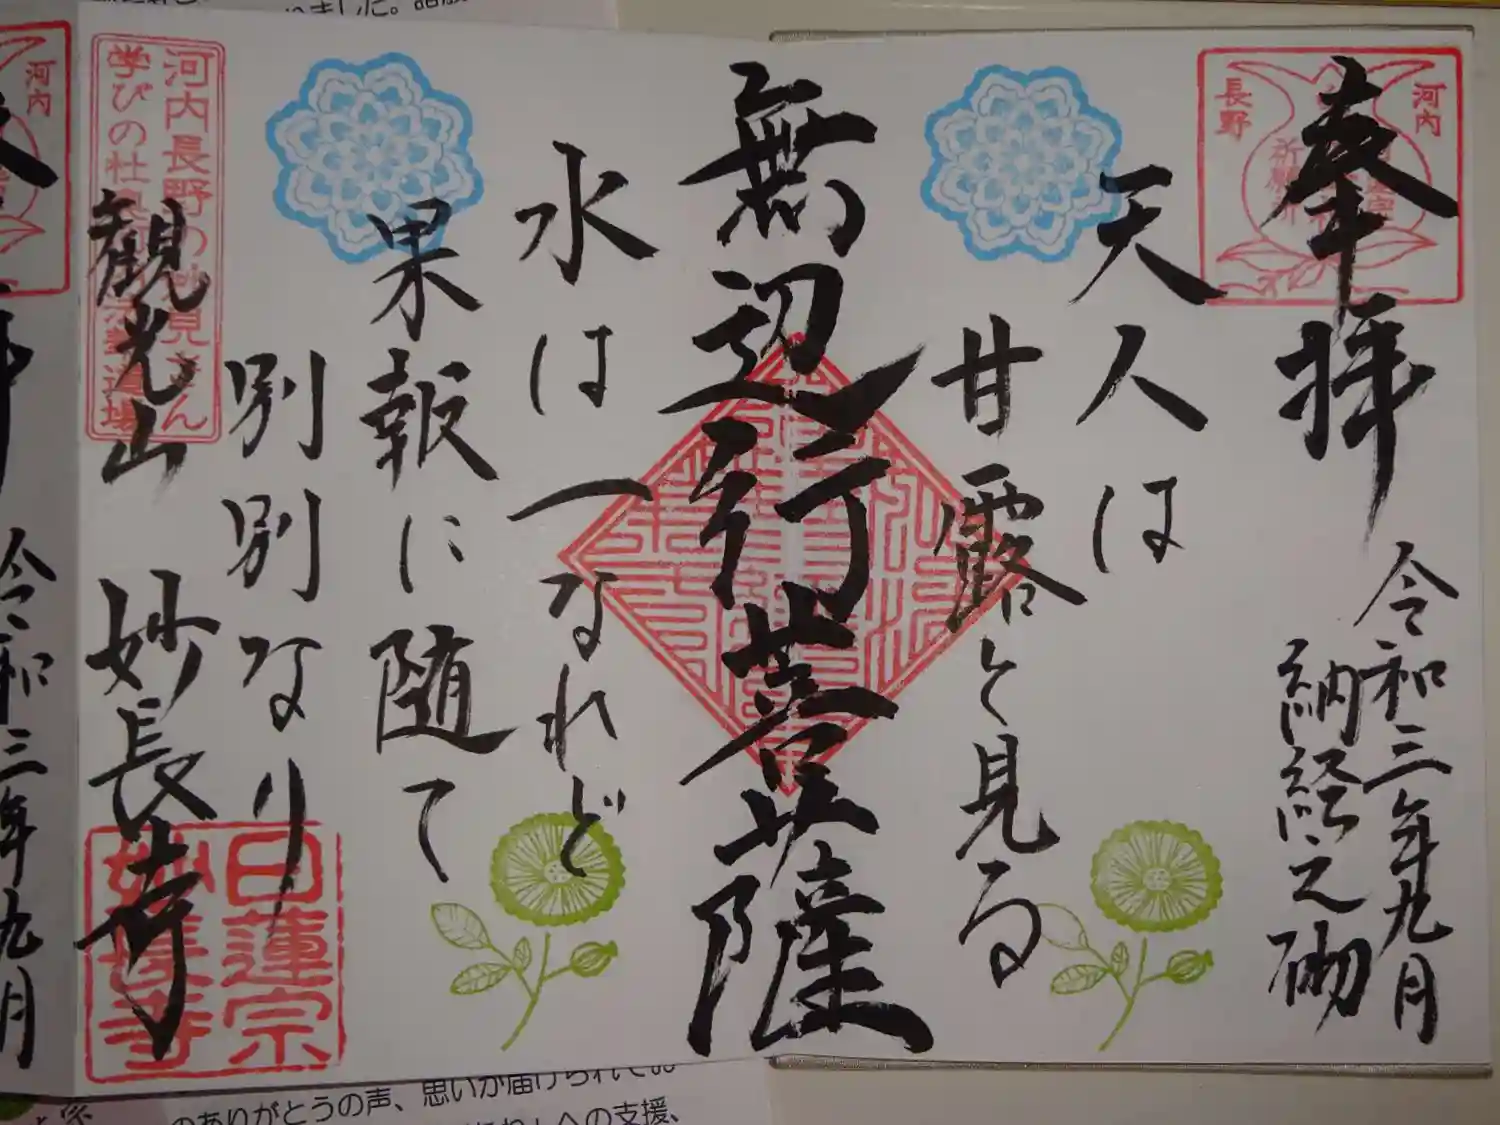 奉拝
令和三年九月
納経之砌
河内
長野
天人は
甘露と見る
無辺行菩薩
水は一つなれど
果報に随て
別別なり
観光山 妙長寺
河内長野の妙見さん
学びの杜
道場
日蓮宗
妙長寺
河内
令和三年九月
ました。
のありがとうの声、思いが届けられてお
への支援、